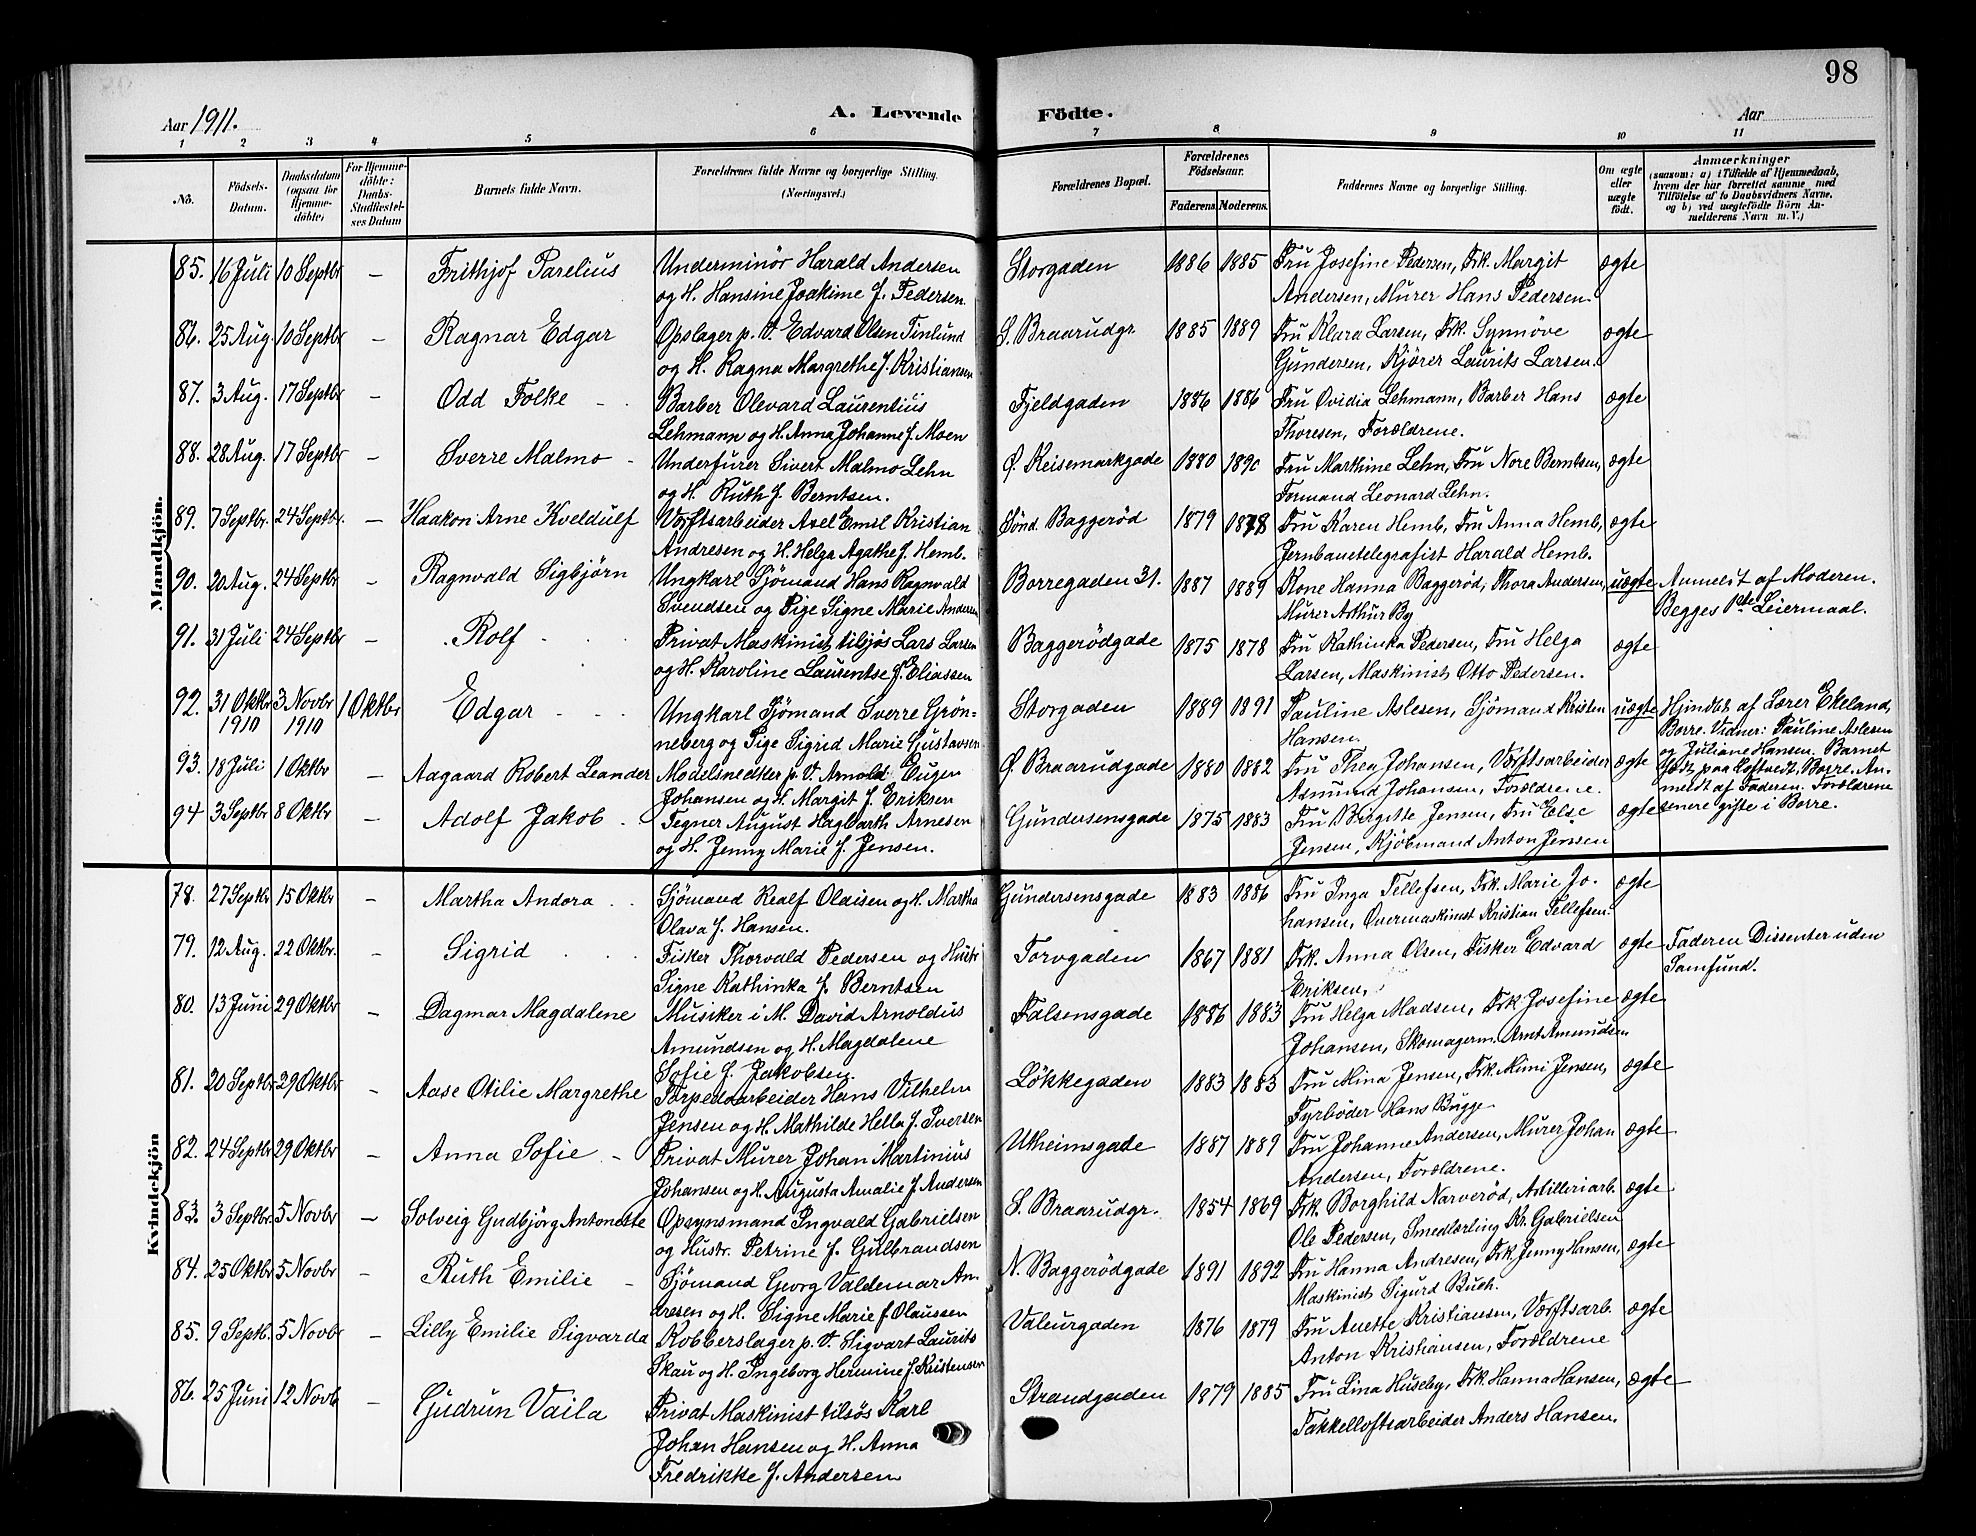 98
Aar 1911. A. Levende Födte. Aar
1 2 3 4 5 6 7 8 9 10 11
No. Födsels-Datum. Daabsdatum (ogsaa for Hjemmedöbte; For Hjemmedöbte: Daabs-Stadfæstelses Datum Barnets fulde Navn. Forældrenes fulde Navne og borgerlige Stilling. (Næringsvei.) Forældrenes Bopæl. Forældrenes Födselsaar. Faderens. Moderens. Faddernes Navne og borgerlige Stilling. Om ægte eller uægte født. Anmærkninger (saasom: a) i Tilfælde af Hjemmedaab, hvem der har forrettet samme med Tilföielse af to Daabsvidners Navne, og b) ved uægtefödte Börn Anmelderens Navn m. V.)
Mandkjön.
85. 16 Juli 10 Septbr – Frithjof Parelius Underminör Harald Andersen Storgaden 1886 1885 Fru Josefine Pedersen, Frk. Margit ægte
og H. Hansine Joakime f. Pedersen. Andersen, Murer Hans Pedersen.
86. 25 Aug. 10 Septbr – Ragnar Edgar Opslager p. V. Edvard Olsen Finlund S. Braarudgr. 1885 1889 Fru Klara Larsen, Frk. Synnöve ægte
og H. Ragna Margrethe f. Kristiansen Gundersen, Kjörer Laurits Larsen.
87. 3 Aug. 17 Septbr – Odd Folke Barber Olevard Laurentius Fjeldgaden 1886 1886 Fru Ovidia Lehmann, Barber Hans ægte
Lehmann og H. Anna Johanne f. Moen Thoresen, Forældrene.
88. 28 Aug. 17 Septbr – Sverre Malmo Underfurer Sivert Malmo Lehn Ø. Keisemarkgade 1880 1890 Fru Marthine Lehn, Fru Nore Berntsen, ægte
og H. Ruth f. Berntsen. Formand Leonard Lehn.
89. 7 Septbr. 24 Septbr. – Haakon Arne Kveldulf Værftsarbeider Axel Emil Kristian Sönd. Baggeröd 1879 1878 Fru Karen Hemb, Fru Anna Hemb, ægte
Andresen og H. Helga Agathe f. Hemb. Jernbanetelegrafist Harald Hemb.
90. 20 Aug. 24 Septbr – Ragnvald Sigbjörn Ungkarl Sjömand Hans Ragnvald Borregaden 31. 1887 1889 Kone Hanna Baggeröd, Thora Andersen, uægte Anmeldt af Moderen.
Svendsen og Pige Signe Marie Andersen Murer Arthur By Begges 1ste Leiermaal.
91. 31 Juli 24 Septbr – Rolf Privat Maskinist tilsjös Lars Larsen Baggerödgade 1875 1878 Fru Kathinka Pedersen, Fru Helga ægte
og H. Karoline Laurentse f. Eliassen Larsen, Maskinist Otto Pedersen.
92. 31 Oktbr 1910 3 Novbr 1910 1 Oktbr Edgar Ungkarl Sjömand Sverre Grön- Storgaden 1889 1891 Pauline Aslesen, Sjömand Kristen uægte Hjmdbt af Lærer Ekeland,
neberg og Pige Sigrid Marie Gustavsen Hansen. Borre. Vidner: Pauline Aslesen
og Juliane Hansen. Barnet
93. 18 Juli 1 Oktbr – Aagaard Robert Leander Modelsnedker p. V. Arnold Eugen Ø. Braarudgade 1880 1882 Fru Thea Johansen, Værftsarbeider ægte födt paa Loftvedt, Borre. An-
Johansen og H. Margit f. Eriksen Asmund Johansen, Forældrene. meldt af Faderen. Forældrene
94 3 Septbr 8 Oktbr – Adolf Jakob Tegner August Hagbarth Arnesen Gundersensgade 1875 1883 Fru Birgitte Jensen, Fru Else ægte senere gifte i Borre.
og H. Jenny Marie f. Jensen. Jensen, Kjöbmand Anton Jenssen
Kvindekjön
78. 27 Septbr 15 Oktbr – Martha Andora Sjömand Realf Olaisen og H. Martha Gundersensgade 1883 1886 Fru Inga Tellefsen, Frk. Marie Jo- ægte
Olava f. Hansen. hansen, Overmaskinist Kristian Tellefsen.
79. 12 Aug. 22 Oktbr. – Sigrid Fisker Thorvald Pedersen og Hustr Torvgaden 1867 1881 Frk. Anna Olsen, Fisker Edvard ægte Faderen Dissenter uden
Signe Kathinka f. Berntsen Eriksen, Samfund.
80. 13 Juni 29 Oktbr – Dagmar Magdalene Musiker i M. David Arnoldus Falsensgade 1886 1883 Fru Helga Madsen, Frk. Josefine ægte
Amundsen og H. Magdalene Johansen, Skomagerm. Arnt Amundsen
Sofie f. Jakobsen.
81. 20 Septbr 29 Oktbr – Aase Otilie Margrethe Torpedoarbeider Hans Vilhelm Lökkegaden 1883 1883 Fru Mina Jensen, Frk. Mimi Jensen, ægte
Jensen og H. Mathilde Hella f. Iversen Fyrböder Hans Bugge
82. 24 Septbr 29 Oktbr – Anna Sofie – Privat Murer Johan Martinius Utheimsgade 1887 1889 Fru Johanne Andersen, Murer Johan ægte
Johansen og H. Augusta Amalie f. Andersen Andersen, Forældrene.
83. 3 Septbr. 5 Novbr – Solveig Gudbjörg Antonette Opsynsmand Ingvald Gabrielsen S. Braarudgr. 1854 1869 Frk. Borghild Narveröd, Artilleriarb. ægte
og Hustr. Petrine f. Gulbrandsen Ole Pedersen, Smedlærling Kr. Gabrielsen
84. 25 Oktbr 5 Novbr – Ruth Emilie – Sjömand Georg Valdemar An- N. Baggerödgade 1891 1892 Fru Hanna Andresen, Frk. Jenny Hansen, ægte
dresen og H. Signe Marie f Olaussen Maskinist Sigurd Buch.
85. 9 Septb. 5 Novbr – Lilly Emilie Sigvarda Kobberslager p. V. Sigvart Laurits Valeurgaden 1876 1879 Fru Anette Kristiansen, Værftsarb. ægte
Skau og H. Ingeborg Hermine f. Kristensen Anton Kristiansen, Forældrene
86. 25 Juni 12 Novb – Gudrun Vaila Privat Maskinist tilsös Karl Strandgaden 1879 1885 Fru Lina Huseby, Frk. Hanna Hansen, ægte
Johan Hansen og H. Anna Takkelloftsarbeider Anders Hansen.
Fredrikke f. Andersen